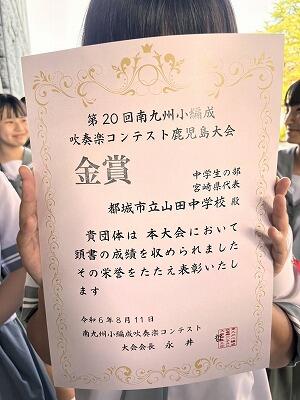 第20回南九州小編成
吹奏楽コンテスト鹿児島大会
金賞
中学生の部
宮崎県代表
都城市立山田中学校 殿
貴団体は 本大会において
頭書の成績を収められました
その栄誉をたたえ表彰いたし
ます
令和6年8月11日
南九州小編成吹奏楽コンテスト
大会会長 永井